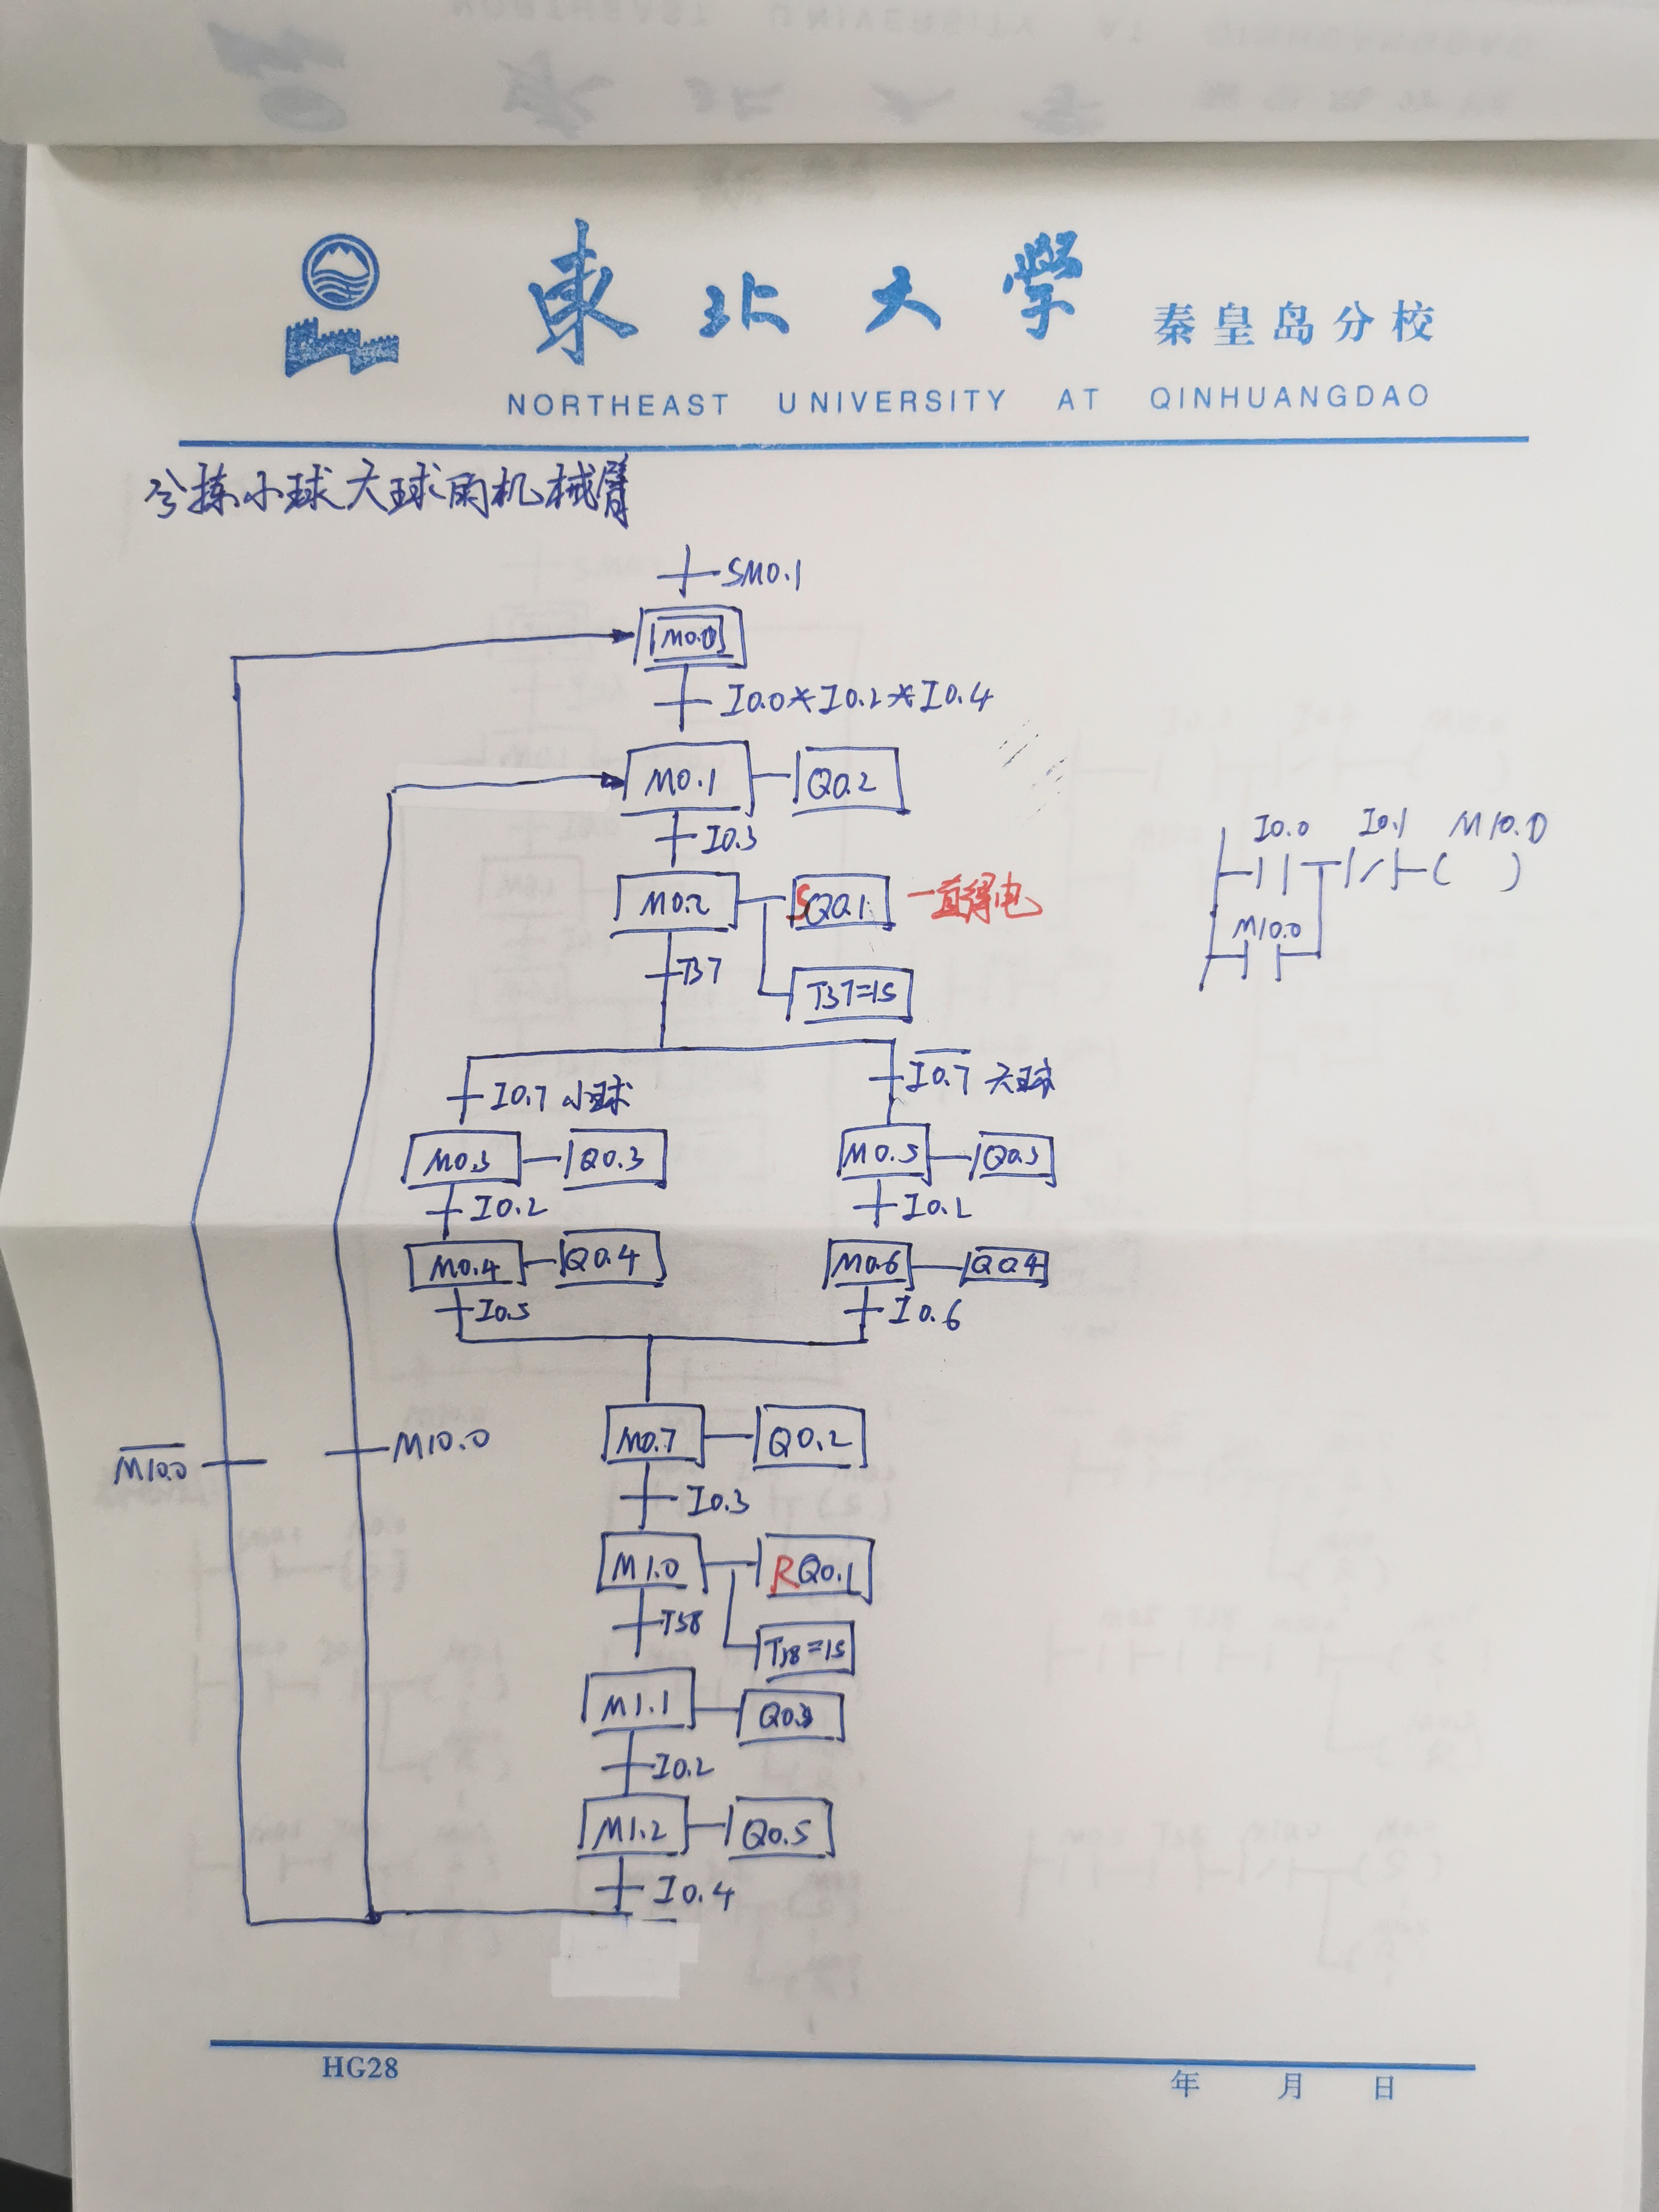 東北大学 秦皇岛分校
NORTHEAST UNIVERSITY AT QINHUANGDAO
分拣小球大球的机械臂
SM0.1
M0.0
I0.0*I0.2*I0.4
M0.1 Q0.2
I0.3
I0.0 I0.1 M10.0
M10.0
M0.2 SQ0.1 一直得电
T37
T37=1s
I0.7 小球 I0.7 大球
M0.3 Q0.3 M0.5 Q0.3
I0.2 I0.2
M0.4 Q0.4 M0.6 Q0.4
I0.5 I0.6
M0.7 Q0.2
M10.0 M10.0
I0.3
M1.0 RQ0.1
T38
T38=1s
M1.1 Q0.3
I0.2
M1.2 Q0.5
I0.4
HG28 年 月 日